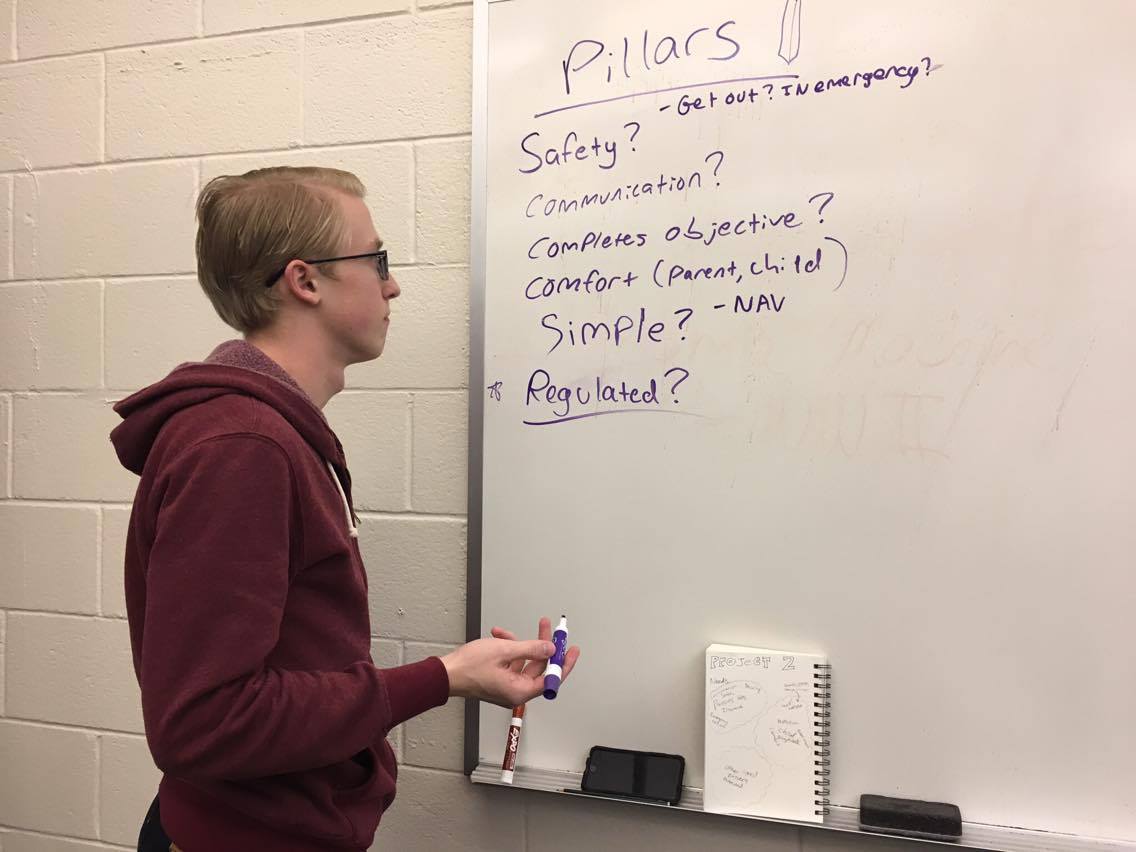 Pillars
- Get out? IN emergency?
Safety?
Communication?
Completes objective?
Comfort (Parent, child)
Simple? - NAV
Regulated?
EXPO
PROJECT 2
Needs